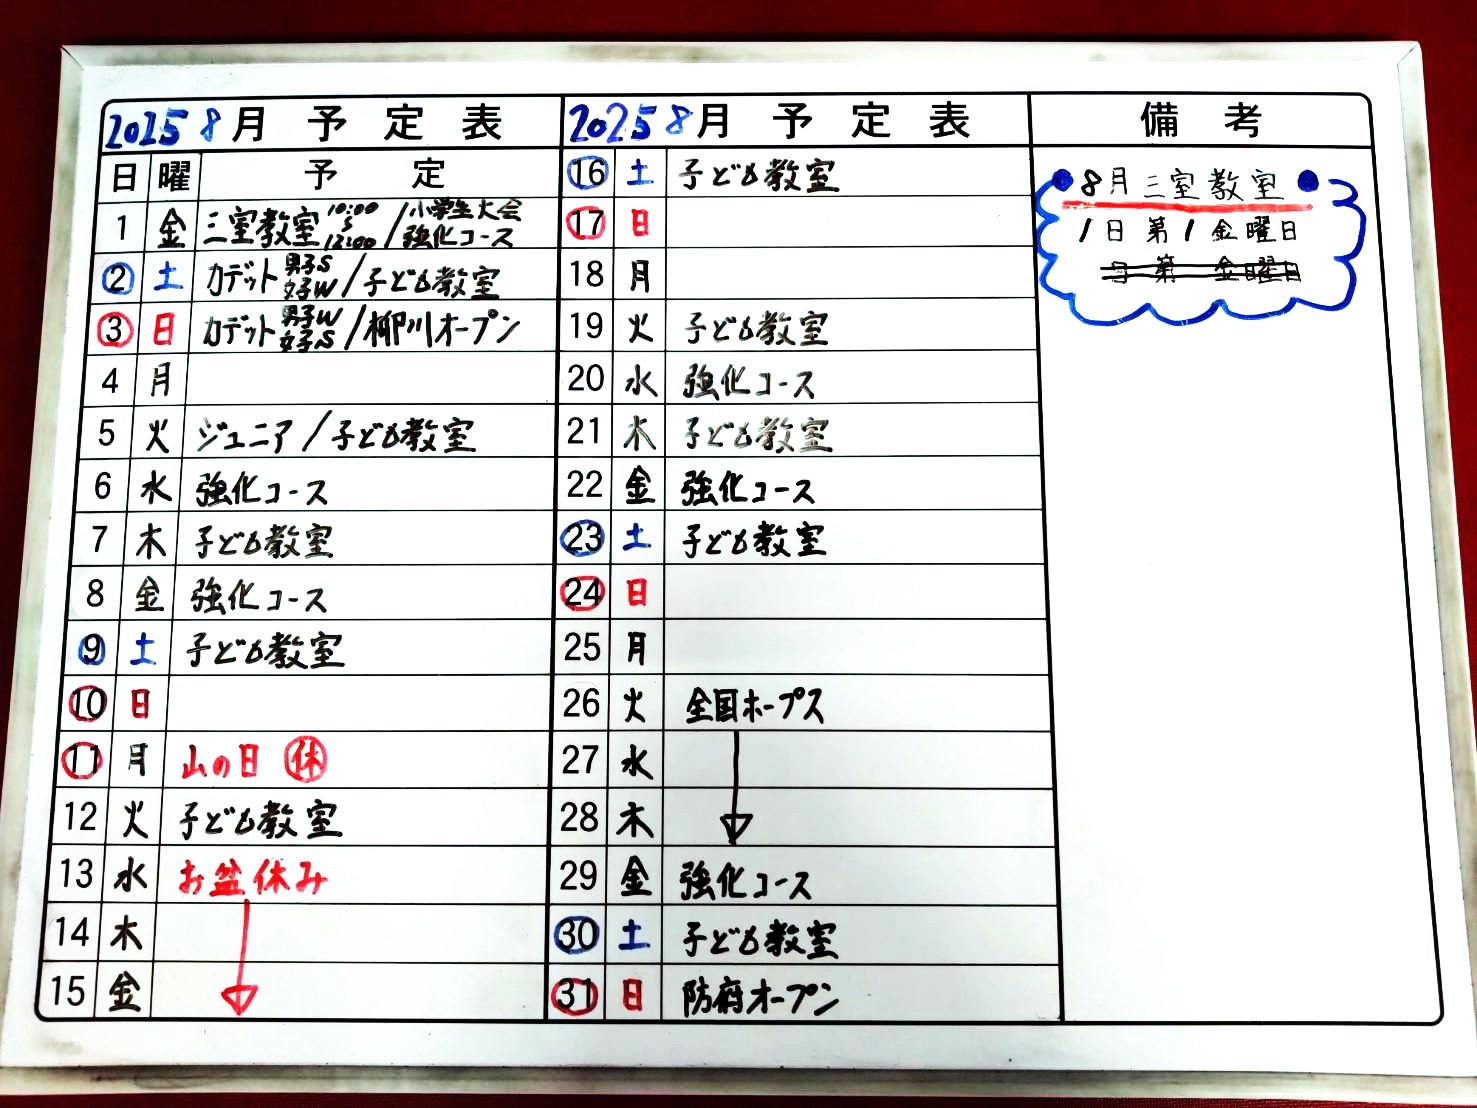 2025 8月 予定表
日 曜 予定
1 金 三室教室 10:00〜12:00 / 小学生大会 強化コース
2 土 カデット 男子S 女子W / 子ども教室
3 日 カデット 男子W 女子S / 柳川オープン
4 月
5 火 ジュニア / 子ども教室
6 水 強化コース
7 木 子ども教室
8 金 強化コース
9 土 子ども教室
10 日
11 月 山の日 休
12 火 子ども教室
13 水 お盆休み
14 木
15 金
2025 8月 予定表
16 土 子ども教室
17 日
18 月
19 火 子ども教室
20 水 強化コース
21 木 子ども教室
22 金 強化コース
23 土 子ども教室
24 日
25 月
26 火 全国ホープス
27 水
28 木
29 金 強化コース
30 土 子ども教室
31 日 防府オープン
備考
8月三室教室
1日 第1金曜日
日 第 金曜日